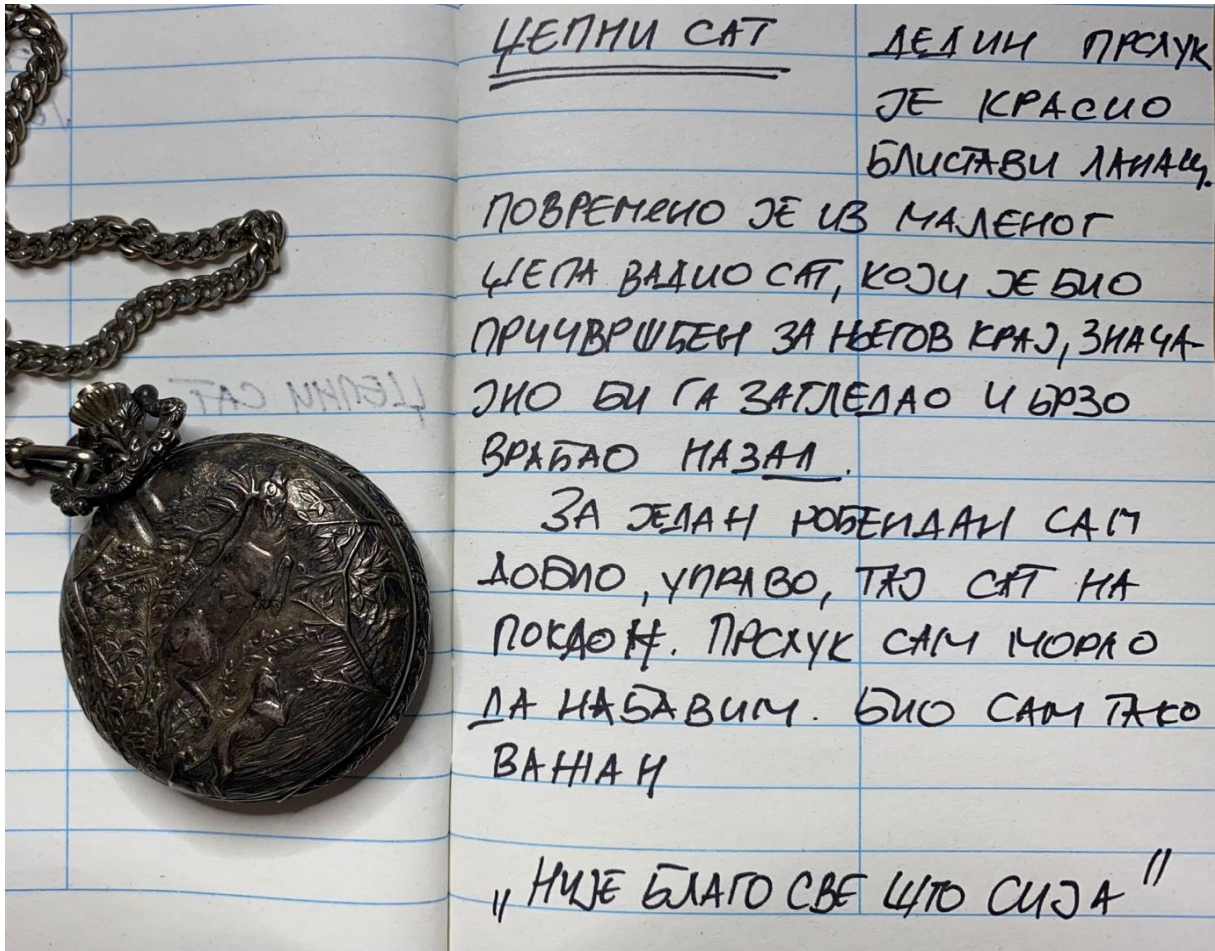 ЏЕПНИ САТ
ДЕДИН ПРСЛУК
ЈЕ КРАСИО
БЛИСТАВИ ЛАНАЦ.
ПОВРЕМЕНО ЈЕ ИЗ МАЛЕНОГ
ЏЕПА ВАДИО САТ, КОЈИ ЈЕ БИО
ПРИЧВРШЋЕН ЗА ЊЕГОВ КРАЈ, ЗНАЧА-
ЈНО БИ ГА ЗАГЛЕДАО И БРЗО
ВРАЋАО НАЗАД.
ЗА ЈЕДАН РОЂЕНДАН САМ
ДОБИО, УПРАВО, ТАЈ САТ НА
ПОКЛОН. ПРСЛУК САМ МОРАО
ДА НАБАВИМ. БИО САМ ТАКО
ВАЖАН
„НИЈЕ БЛАГО СВЕ ШТО СИЈА"